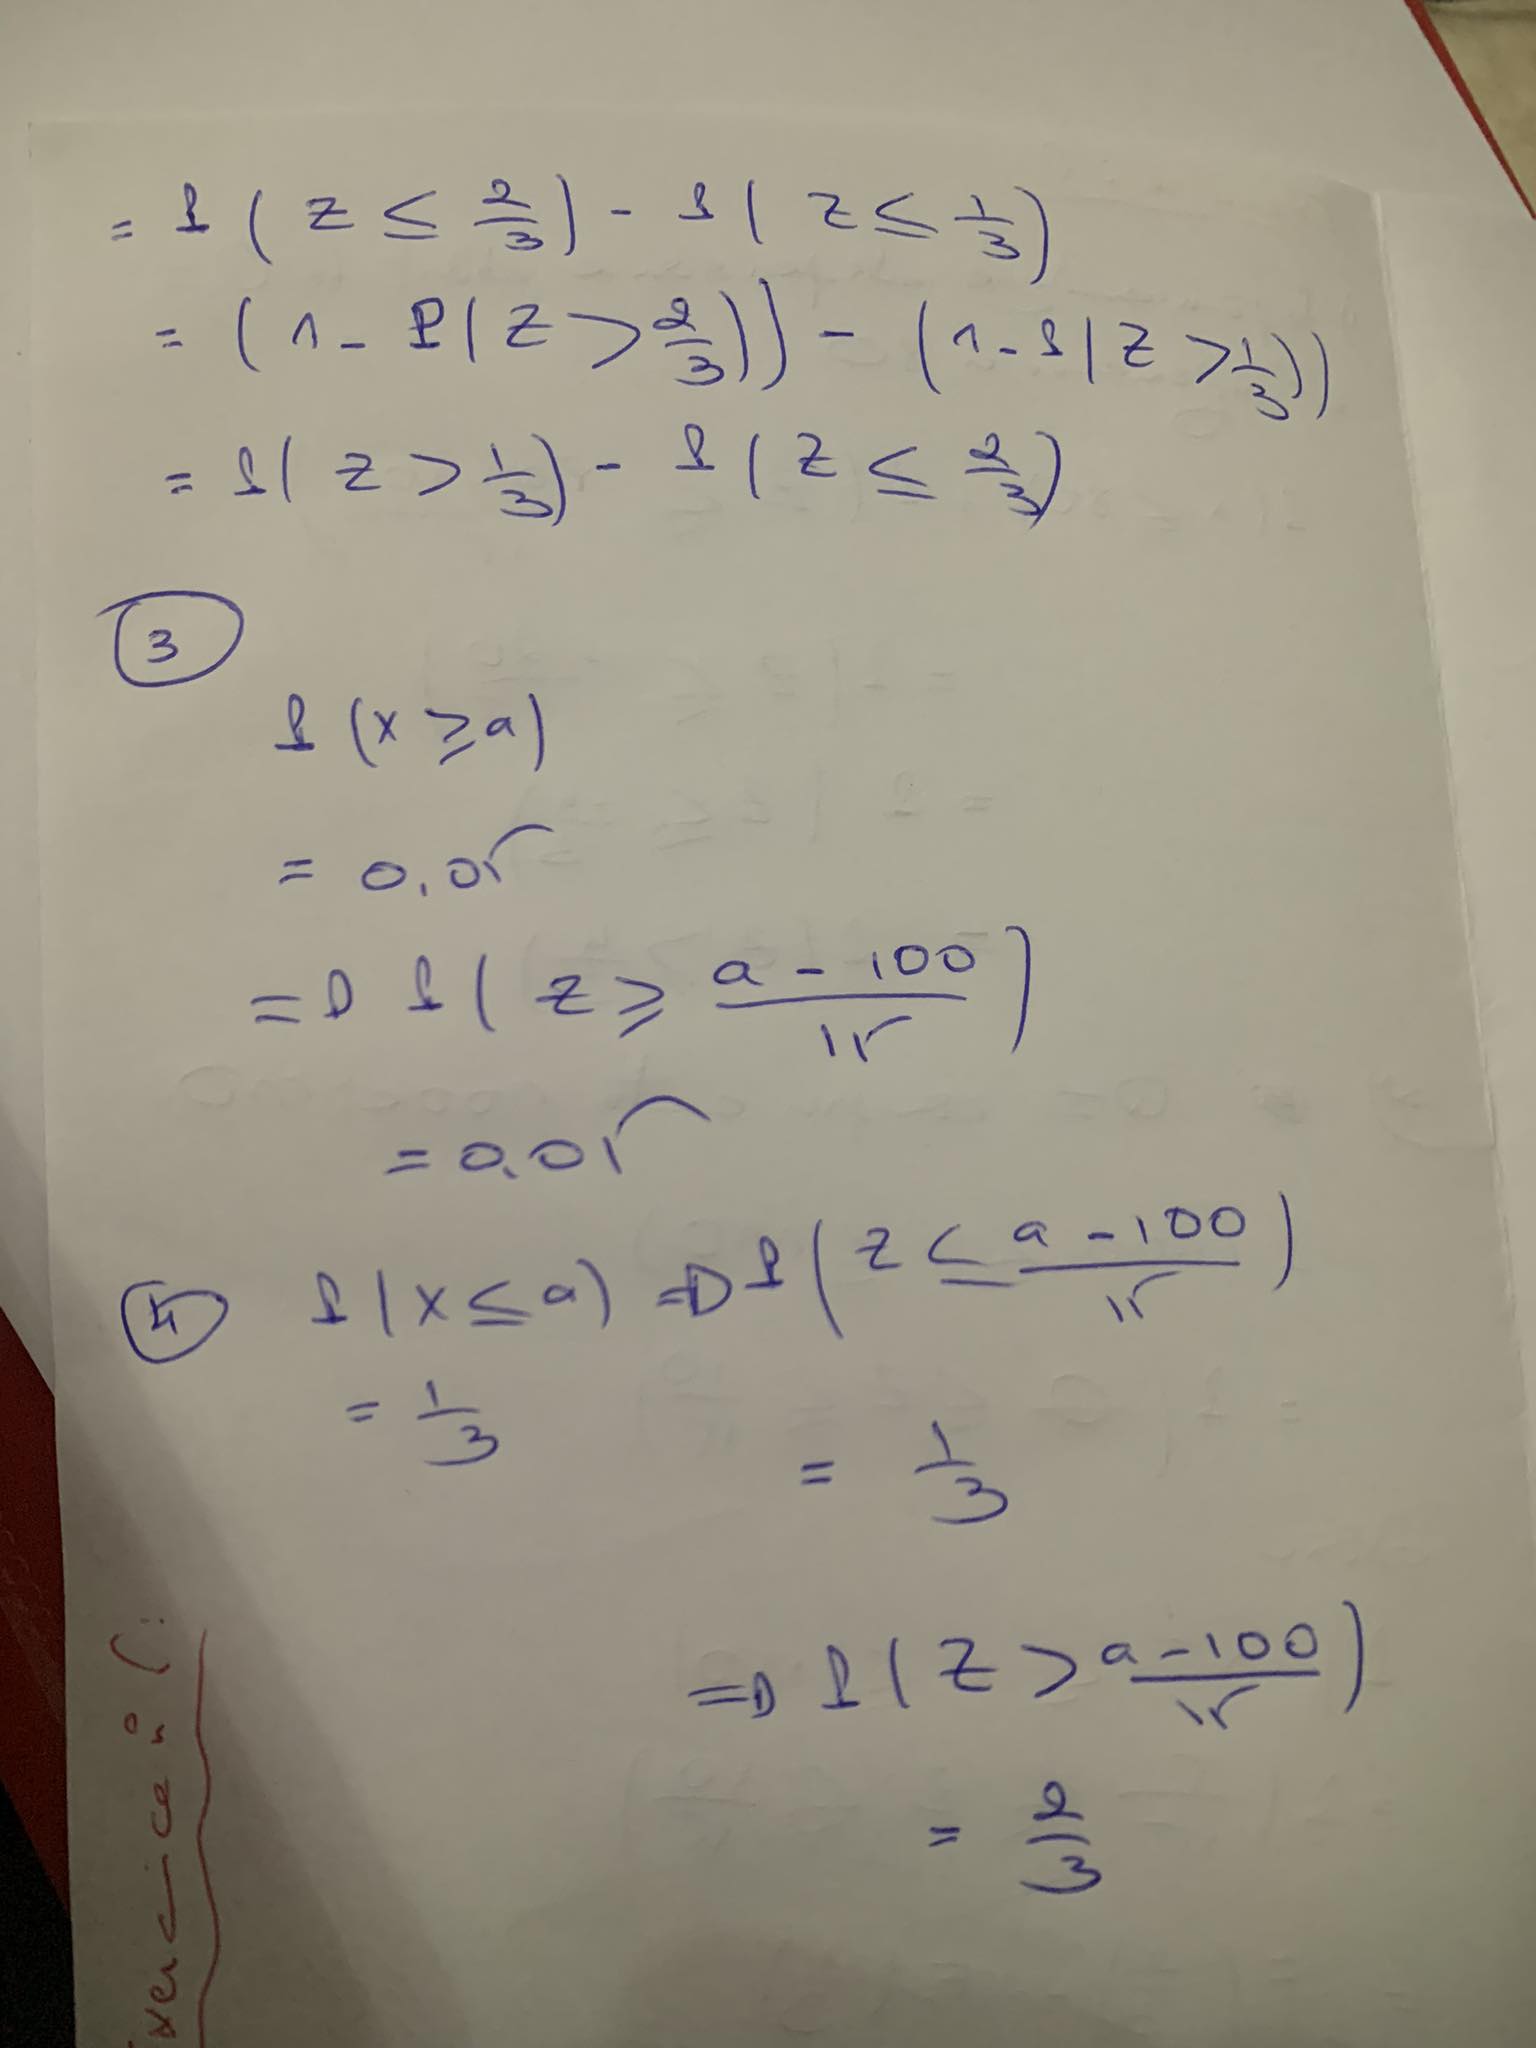 = P ( Z ≤ 2/3 ) - P ( Z ≤ 1/3 )
= ( 1 - P ( Z > 2/3 ) ) - ( 1 - P ( Z > 1/3 ) )
= P ( Z > 1/3 ) - P ( Z ≤ 2/3 )
3
P ( X ≥ a )
= 0,05
=D P ( Z ≥ (a - 100)/15 )
= 0,05
4 P ( X ≤ a ) =D P ( Z ≤ (a - 100)/15 )
= 1/3 = 1/3
=D P ( Z > (a - 100)/15 )
= 2/3
Exercice n° 5: